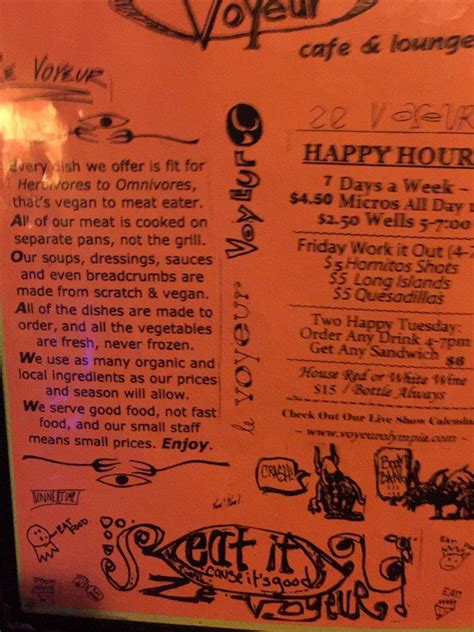 Voyeur
cafe & lounge
Le VOYEUR
Every dish we offer is fit for
Herbivores to Omnivores,
that's vegan to meat eater.
All of our meat is cooked on
separate pans, not the grill.
Our soups, dressings, sauces
and even breadcrumbs are
made from scratch & vegan.
All of the dishes are made to
order, and all the vegetables
are fresh, never frozen.
We use as many organic and
local ingredients as our prices
and season will allow.
We serve good food, not fast
food, and our small staff
means small prices. Enjoy.
le voyeur Voyeur
HAPPY HOUR
7 Days a Week -
$4.50 Micros All Day
$2.50 Wells 5-7:00
Friday Work it Out (4-
$5 Hornitos Shots
$5 Long Islands
$5 Quesadillas
Two Happy Tuesday:
Order Any Drink 4-7pm
Get Any Sandwich $6
House Red or White Wine
$15 / Bottle Always
Check Out Our Live Show Calendar
~ www.voyeurolympia.com ~
CRASH!
EAT
FOOD
eat it
cause it's good
Ze VOYEUR
EAT